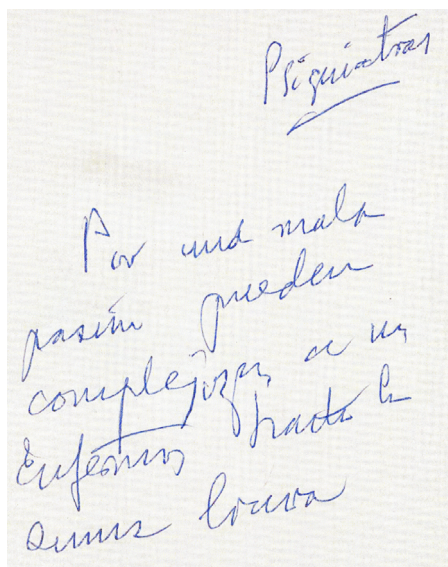 Psiquiatras
Por una mala
pasión pueden
complejizar a un
Enfermo hasta la
suma locura